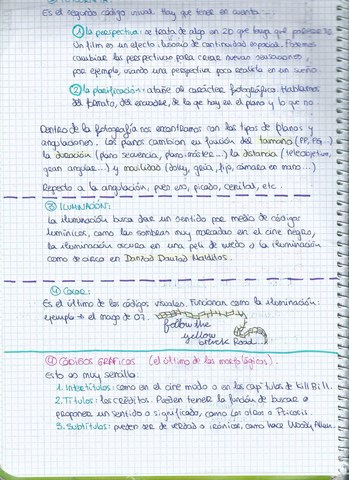 Es el segundo código visual. Hay que tener en cuenta...
① la perspectiva: se trata de algo en 2D que tenga que
Un film es un efecto ilusorio de continuidad espacial. Podemos
cambiar las perspectivas para crear nuevas sensaciones,
por ejemplo, usando una perspectiva poco realista en un sueño.
② la planificación: atañe al carácter fotográfico. Hablamos
del formato, del encuadre, de lo que hay en el plano y lo que no.
Dentro de la fotografía nos encontramos con los tipos de planos y
angulaciones. Los planos cambian en función del tamaño (PP, PG...)
la duración (plano secuencia, plano máster...) la distancia (teleobjetivo,
gran angular...) y movilidad (dolly, grúa, fijo, cámara en mano...)
Respecto a la angulación, pues eso, picado, cenital, etc.
③ ILUMINACIÓN:
La iluminación busca dar un sentido por medio de códigos
lumínicos, como las sombras muy marcadas en el cine negro,
la iluminación oscura en una peli de miedo o la iluminación
como se circa en Danzad Danzad Malditos.
④ COLOR:
Es el último de los códigos visuales. Funcionan como la iluminación:
ejemplo → el mago de Oz.
follow the
yellow
bricks Road...
④ CÓDIGOS GRÁFICOS (el último de los morfológicos).
Esto es muy sencillo.
1. Intertítulos: como en el cine mudo o en los capítulos de Kill Bill.
2. Títulos: los créditos. Pueden tener la función de buscar o
proponer un sentido o significado, como Los otros o Psicosis.
3. Subtítulos: pueden ser de verdad o irónicos, como hace Woody Allen.